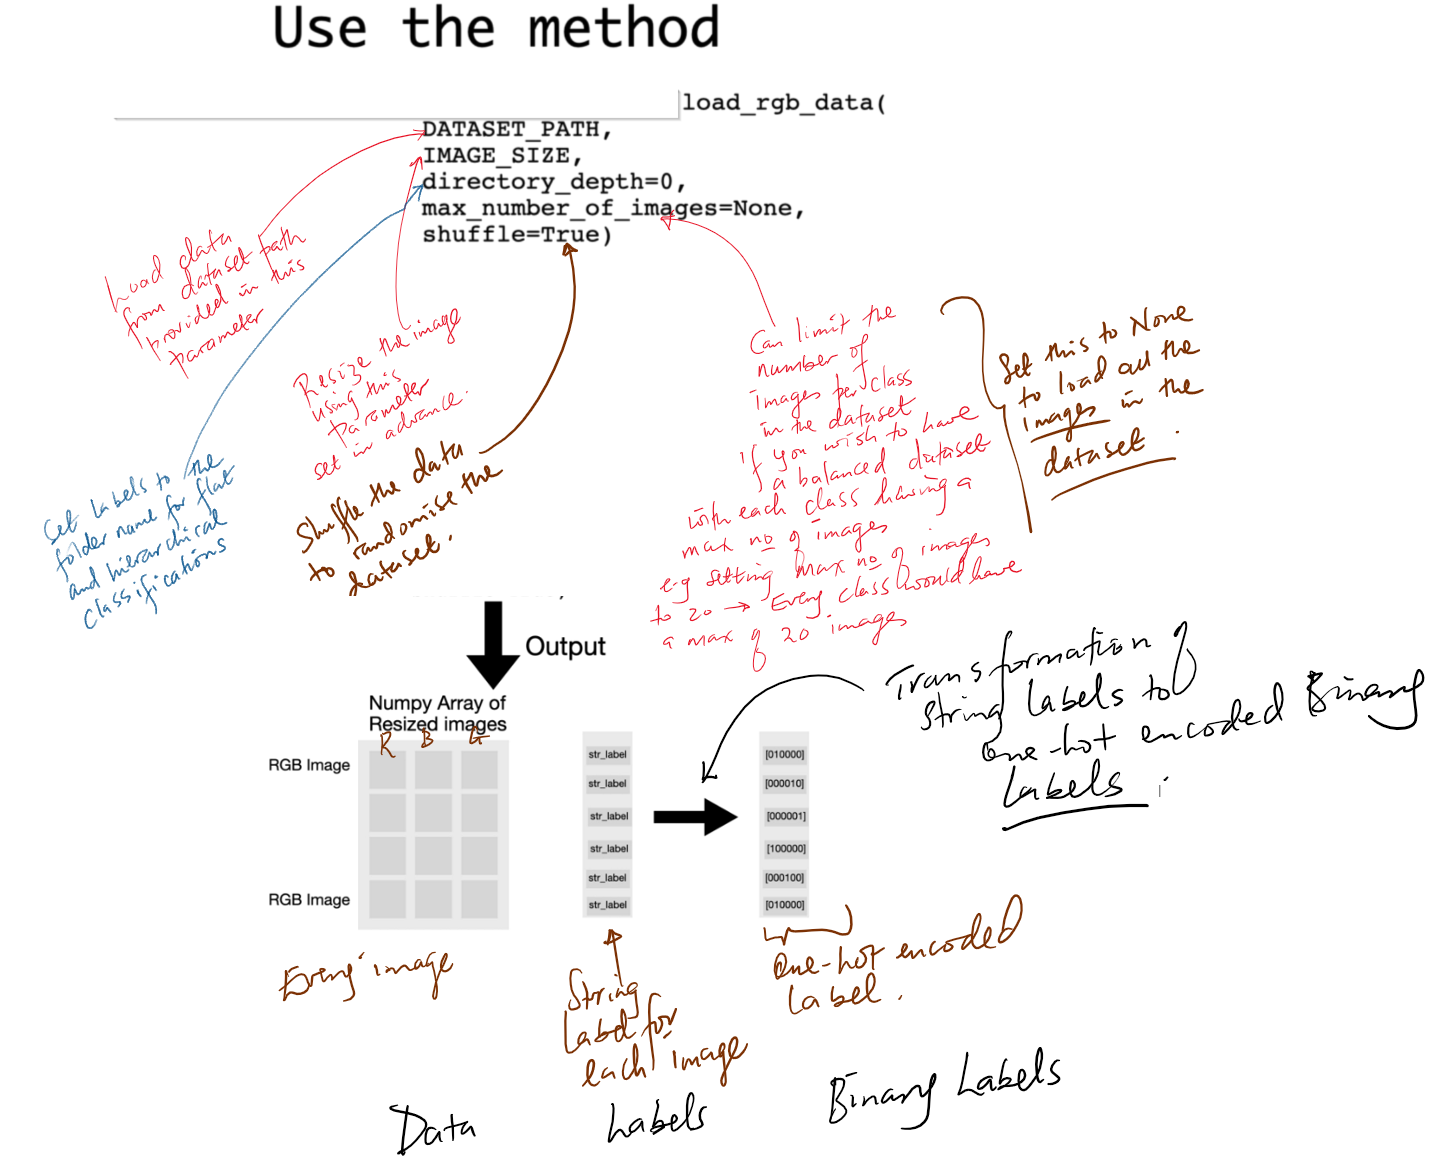 Use the method
load_rgb_data(
DATASET_PATH,
IMAGE_SIZE,
directory_depth=0,
max_number_of_images=None,
shuffle=True)
Load data
from dataset path
provided in this
parameter
Resize the image
using this
parameter
set in advance.
Set Labels to the
folder name for flat
and hierarchical
classifications
Shuffle the data
to randomise the
dataset.
Can limit the
number of
images per class
in the dataset
if you wish to have
a balanced dataset
with each class having a
max no of images
e.g setting max no of images
to 20 → Every class would have
a max of 20 images
Set this to None
to load all the
images in the
dataset.
Output
Numpy Array of
Resized images
R B G
RGB Image
RGB Image
Every image
str_label
str_label
str_label
str_label
str_label
str_label
String
Label for
each image
Transformation of
String Labels to
one-hot encoded Binary
Labels.
[010000]
[000010]
[000001]
[100000]
[000100]
[010000]
One-hot encoded
Label.
Data
Labels
Binary Labels